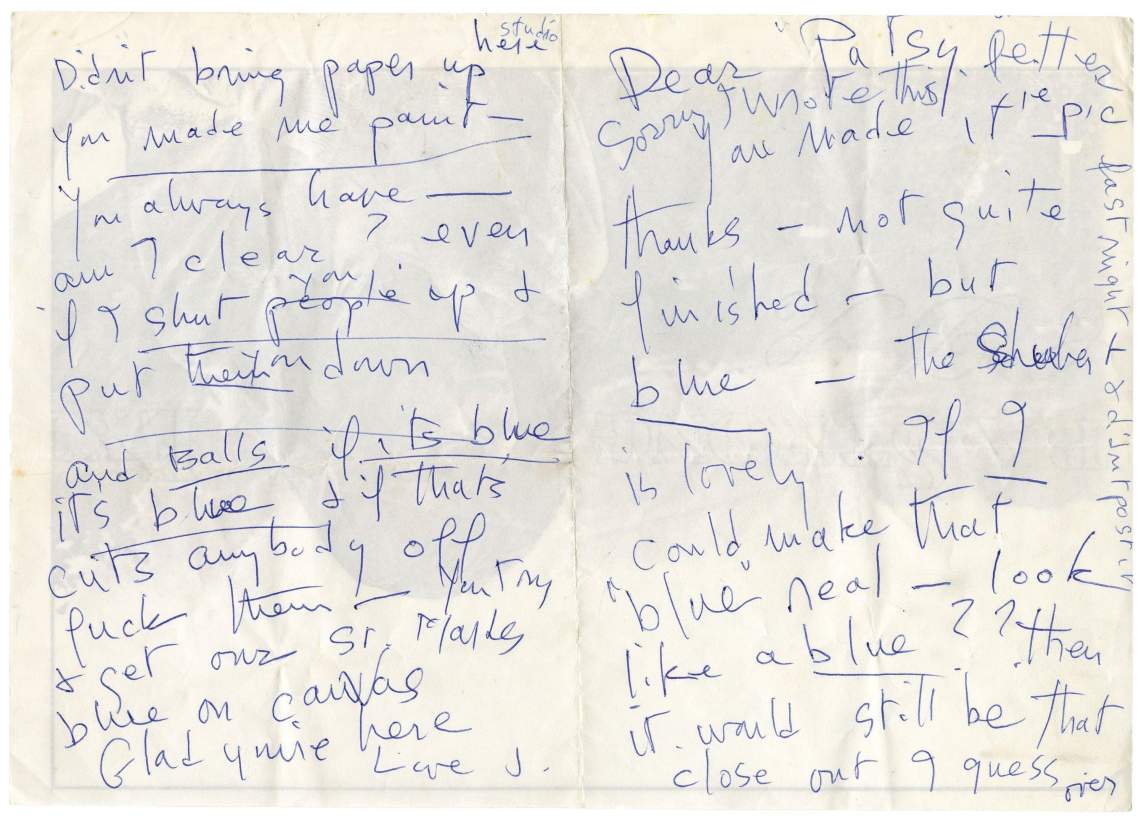 Dear "Patsy"
Sorry I wrote this letter
last night & didn't post it
You made it the pic
thanks — not quite
finished — but
blue — the Schubert
is lovely. If I
could make that
"blue" real — look
like a blue?? then
it would still be that
close out I guess
over
studio
Didn't bring paper up here
You made me paint —
You always have —
am I clear? even
if I shut people you up &
put them on down
and Balls if its blue
it's blue & if that's
cuts anybody off
fuck them — You try
& get our St. Marks
blue on canvas
Glad you're here
Love J.